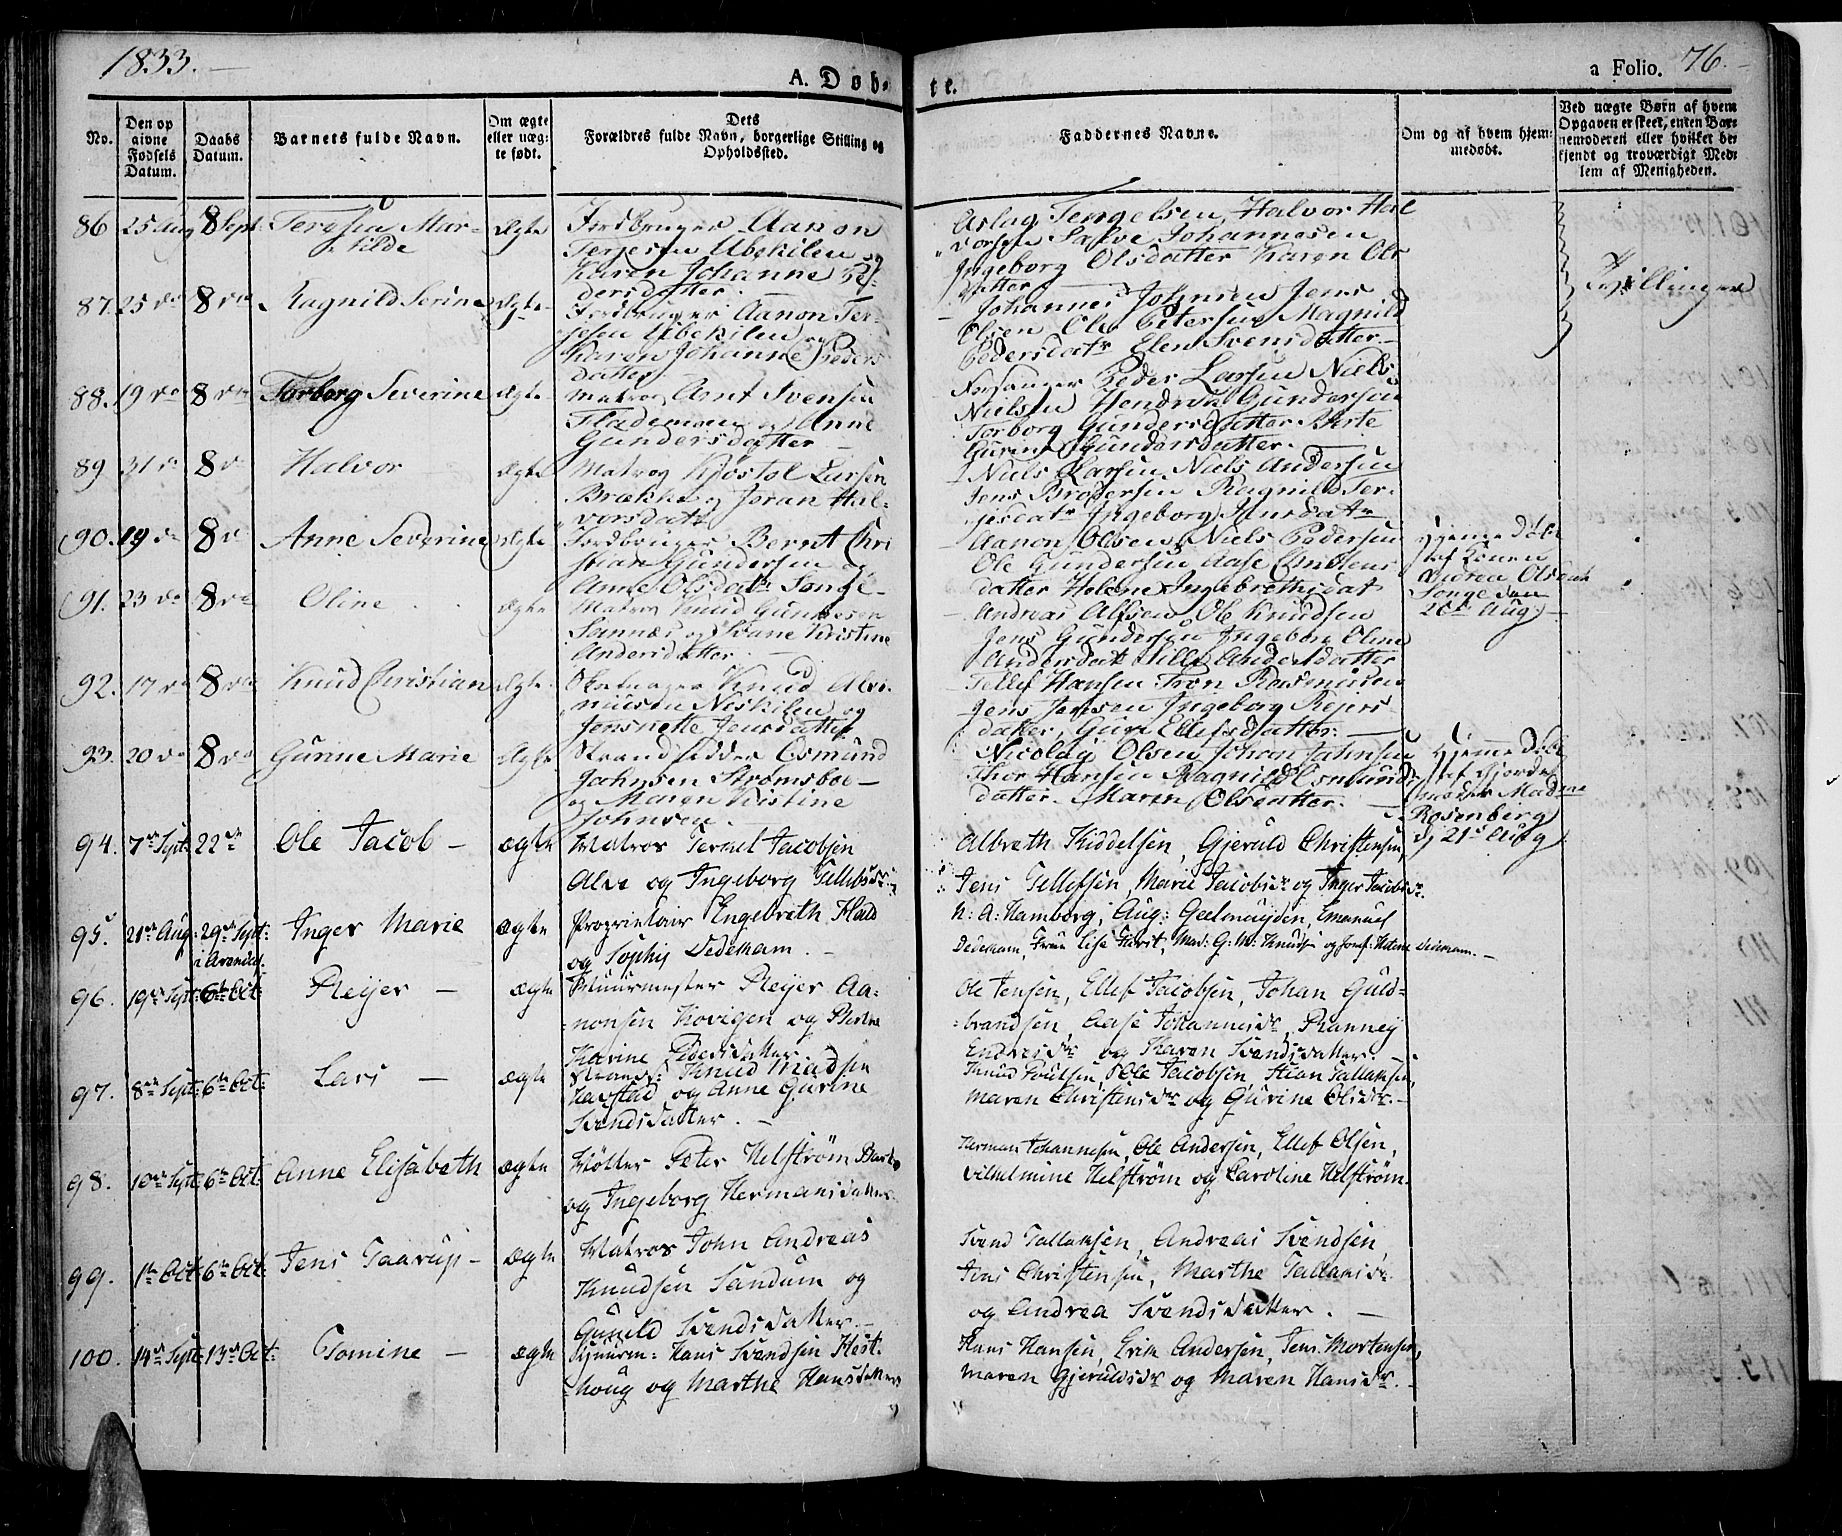 1833.
A. Døb-
te.
a Folio. 76.
No.
Den op
givne
Fødsels
Datum.
Daabs
Datum.
Barnets fulde Navn.
Om ægte
eller uæg-
te født.
Dets
Forældres fulde Navn, borgerlige Stilling og
Opholdssted.
Faddernes Navne.
Om og af hvem hjem-
medøbt.
Ved uægte Børn af hvem
Opgaven er skeet, enten Bar-
nemoderen eller hvilket be-
kjendt og troværdigt Med-
lem af Menigheden.
86 25 Aug 8 Sept: Teresen Mar- Ægte Jordbruger Aanon
tilde
Terjesen Ubekilen og
Karen Johanne Pe-
dersdatter.
Aslag Tengelsen, Halvor Hal
vorsen Salve Johannesen
Ingeborg Olsdatter Karen Ols
datter.
Tvillinger
87. 25 do 8 do Ragnild Serine Ægte Jordbruger Aanon Ter-
jesen Ubekilen og
Karen Johanne Peders
datter
Johannes Johnsen Jens
Olsen Ole Petersen Magnild
Pedersdatr Elen Svensdatter
88. 19 do 8 do Torborg Severine Ægte Matros Arnt Svensen
Flademoen og Anne
Gundersdatter
Forsanger Peder Larsen Niels
Nielsen Hendrik Gundersen
Torborg Gundersdatter Birte
Guren Gundersdatter.
89 31 do 8 do Halvor Ægte Matros Kjøstol Larsen
Brække og Joran Hal-
vorsdatr
Niels Larsen Niels Andersen
Jens Brodersen Ragnild Ter-
jesdatr Ingeborg Jensdatr
90. 19 do 8 do Anne Severine Ægte Jordbruger Bernt Chri
stian Gundersen og
Anne Olsdatr Songe
Aanon Olsen Niels Pedersen
Ole Gundersen Aase Knudens
datter Helene Ingebrethsdat
Hjemme Døbt
af Konen
Andrea Olsdat
Songe den
20de Aug.
91. 23 do 8 do Oline Ægte Matros Knud Gundersen
Sannæs og Svane Kristine
Andersdatter.
Andreas Alfsen Ole Knudsen
Jens Gundersen Ingebor Oline
Andersdatr Sille Andersdatter
92. 17 do 8 do Knud Christian Ægte Knud
Neskilen og
Jensnette Jensdatter
Tellef Hansen Tron Rasmusen
Jens Jensen Ingeborg Rejers
datter, Guro Ellefsdatter.
93. 20 do 8 do Gunne Marie Ægte Strandsidder Osmund
Johnsen Strømsboe
og Maren Kristine
Johnsen.
Nicolay Olsen Johan Jahnsen
Thor Hansen Ragnild Osmunds
datter. Maren Olsdatter.
Hjemme Døbt
af Gjorde
moder Madme
Rosenberg
d 21de Aug
94. 7de Sept: 22de Ole Jacob ægte Matros Terrel Jacobsen
Alve og Ingeborg Tellefsdr
Albreth Kiddelsen, Gjeruld Christensen,
Jens Tellefsen, Marie Jacobsdr og Inger Jacobsdr.
95. 21de Aug: 29de Sept: Inger Marie ægte Proprietair Engebreth Hald
i Arendal.
og Sophie Dedekam.
N. A: Hamborg, Aug: Geelmuyden, Emanuel
Dedekam, Frue Lise Furst, Mad: G: M: Knudsen og Jomf: Helene Dedekam.
96. 19de Sept: 6te Oct: Reijer ægte Styurmester Reijer Aa-
nonsen Kovigen og
Karine Pedersdatter
Ole Jensen, Ellef Jacobsen, Johan Guld-
brandsen, Aase Johannesdr, Ranney
Endresdr og Karen Svendsdatter.
97. 8de Sept: 6te Oct: Lars ægte Strands: Knud Madsen
Havstad og Anne Gurine
Svendsdatter.
Knud Poulsen, Ole Jacobsen, Stian Tallaksen,
Maren Christensdr og Gurine Olsdr.
98. 10de Sept: 6te Oct: Anne Elisabeth ægte Møller Peter Helstrøm Barbo
og Ingeborg Hermansdatter.
Herman Johannesen, Ole Andersen, Ellef Olsen,
Vilhelmine Helstrøm og Caroline Helstrøm.
99. 1te Oct: 6te Oct: Jens Taarup ægte Matros John Andreas
Knudsen Sandum og
Gunild Svendsdatter.
Svend Tallaksen, Andreas Svendsen,
Jens Christensen, Marthe Tallaksdr
og Andrea Svendsdatter.
100. 14de Sept: 13de Oct: Tomine ægte Styurm: Hans Svendsen Hest-
houg og Marthe Hansdatter
Hans Hansen, Erik Andersen, Jens Mortensen,
Maren Gjeruldsdr og Maren Hansdr.